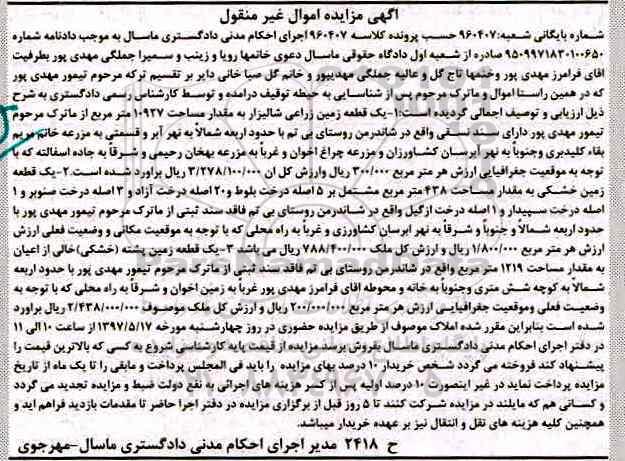 آگهی مزایده اموال غیر منقول
شماره بایگانی شعبه: ۹۶۰۴۰۷ حسب پرونده کلاسه ۹۶۰۴۰۷ اجرای احکام مدنی دادگستری ماسال به موجب دادنامه شماره
۹۵۰۹۹۷۱۸۳۰۱۰۰۶۵۰ صادره از شعبه اول دادگاه حقوقی ماسال دعوی خانمها رویا و زینب و سمیرا جملگی مهدی پور بطرفیت
اقای فرامرز مهدی پور وخنمها تاج گل و عالیه جملگی مهدیپور و خانم گل صبا خانی دایر بر تقسیم ترکه مرحوم تیمور مهدی پور
که در همین راستا اموال و ماترک مرحوم پس از شناسایی به حیطه توقیف درآمده و توسط کارشناس رسمی دادگستری به شرح
ذیل ارزیابی و توصیف اجمالی گردیده است: ۱-یک قطعه زمین زراعی شالیزار به مقدار مساحت ۱۰۹۲۷ متر مربع از ماترک مرحوم
تیمور مهدی پور دارای سند نسقی واقع در شاندرمن روستای بی تم با حدود اربعه شمالاً به نهر آبر و قسمتی به مزرعه خانم مریم
بقاء کلیدبری وجنوباً به نهر ابرسان کشاورزان و مزرعه چراغ اخوان و غرباً به مزرعه بهخان رحیمی و شرقاً به جاده اسفالته که با
توجه به موقعیت جغرافیایی ارزش هر متر مربع ۳۰۰/۰۰۰ ریال وارزش کل ان ۳/۲۷۸/۱۰۰/۰۰۰ ریال براورد شده است.۲-یک قطعه
زمین خشکی به مقدار مساحت ۴۳۸ متر مربع مشتمل بر ۵ اصله درخت بلوط و۲۰ اصله درخت آزاد و ۳ اصله درخت صنوبر و ۱
اصله درخت سپیدار و ۱ اصله درخت ازگیل واقع در شاندرمن روستای بی تم فاقد سند ثبتی از ماترک مرحوم تیمور مهدی پور با
حدود اربعه شمالا و جنوباً و شرقاً به نهر ابرسان کشاورزی و غرباً به راه محلی که با توجه به موقعیت مکانی و وضعیت فعلی ارزش
ارزش هر متر مربع ۱/۸۰۰/۰۰۰ ریال و ارزش کل ملک ۷۸۸/۴۰۰/۰۰۰ ریال می باشد ۳-یک قطعه زمین پشته (خشکی)خالی از اعیان
به مقدار مساحت ۱۲۱۹ متر مربع واقع در شاندرمن روستای بی تم فاقد سند ثبتی از ماترک مرحوم تیمور مهدی پور با حدود اربعه
شمالاً به کوچه شش متری وجنوباً به خانه و محوطه اقای فرامرز مهدی پور غرباً به زمین اخوان و شرقاً به راه محلی که با توجه به
وضعیت فعلی وموقعیت جغرافیایی ارزش هر متر مربع ۲۰۰/۰۰۰/۰۰۰ ریال و ارزش کل ملک موصوف ۲/۴۳۸/۰۰۰/۰۰۰ ریال براورد
شده است بنابراین مقرر شده املاک موصوف از طریق مزایده حضوری در روز چهارشنبه مورخه ۱۳۹۷/۵/۱۷ از ساعت ۱۰ الی ۱۱
در دفتر اجرای احکام مدنی دادگستری ماسال بفروش برسد مزایده از قیمت پایه کارشناسی شروع به کسی که بالاترین قیمت را
پیشنهاد کند فروخته می گردد شخص خریدار ۱۰ درصد بهای مزایده را باید فی المجلس پرداخت و مابقی را تا یک ماه از تاریخ
مزایده پرداخت نماید در غیر اینصورت ۱۰ درصد اولیه پس از کسر هزینه های اجرائی به نفع دولت ضبط و مزایده تجدید می گردد
و کسانی هم که مایلند در مزایده شرکت کنند تا ۵ روز قبل از برگزاری مزایده در دفتر اجرا حاضر تا مقدمات بازدید فراهم اید و
همچنین کلیه هزینه های نقل و انتقال نیز بر عهده خریدار میباشد.
ح ۲۴۱۸ مدیر اجرای احکام مدنی دادگستری ماسال-مهرجوی